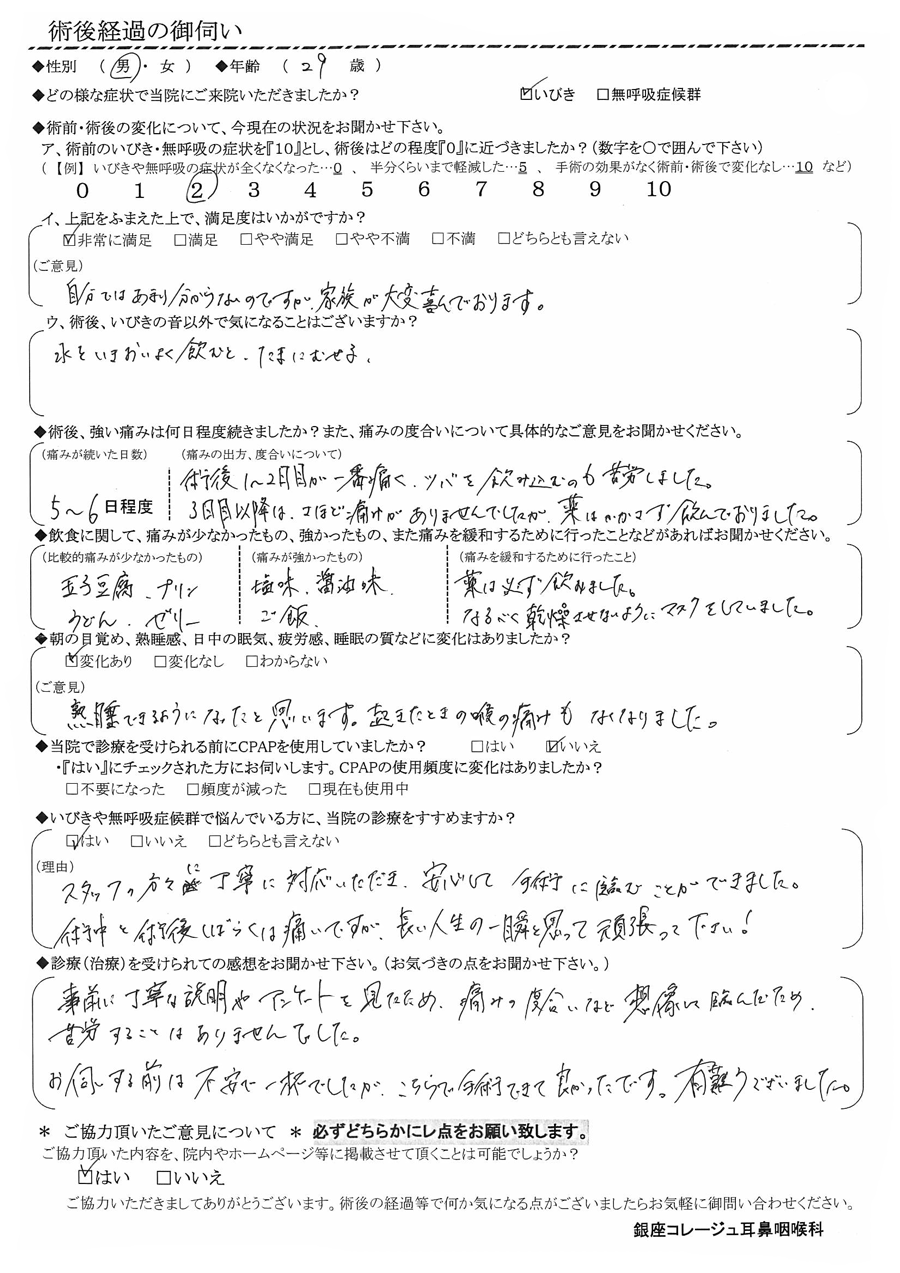 術後経過の御伺い
◆性別 ( 男 ・ 女 ) ◆年齢 ( 29 歳 )
◆どの様な症状で当院にご来院いただきましたか? ☑いびき □無呼吸症候群
◆術前・術後の変化について、今現在の状況をお聞かせ下さい。
ア、術前のいびき・無呼吸の症状を『10』とし、術後はどの程度『0』に近づきましたか?(数字を〇で囲んで下さい)
(【例】いびきや無呼吸の症状が全くなくなった…0 、 半分くらいまで軽減した…5 、 手術の効果がなく術前・術後で変化なし…10 など)
0 1 2 3 4 5 6 7 8 9 10
イ、上記をふまえた上で、満足度はいかがですか?
☑非常に満足 □満足 □やや満足 □やや不満 □不満 □どちらとも言えない
(ご意見)
自分ではあまり分からないのですが、家族が大変喜んでおります。
ウ、術後、いびきの音以外で気になることはございますか?
水をいきおいよく飲むと、たまにむせる、
◆術後、強い痛みは何日程度続きましたか?また、痛みの度合いについて具体的なご意見をお聞かせください。
(痛みが続いた日数) (痛みの出方、度合いについて)
術後1〜2日目が一番痛く、ツバを飲み込むのも苦労しました。
5〜6日程度 3日目以降は、さほど痛みがありませんでしたが、薬はかかさず飲んでおりました。
◆飲食に関して、痛みが少なかったもの、強かったもの、また痛みを緩和するために行ったことなどがあればお聞かせください。
(比較的痛みが少なかったもの) (痛みが強かったもの) (痛みを緩和するために行ったこと)
玉子豆腐、プリン 塩味、醤油味 薬は必ず飲みました。
うどん、ゼリー ご飯、 なるべく乾燥させないようにマスクをしていました。
◆朝の目覚め、熟睡感、日中の眠気、疲労感、睡眠の質などに変化はありましたか?
☑変化あり □変化なし □わからない
(ご意見)
熟睡できるようになったと思います。起きたときの喉の痛みもなくなりました。
◆当院で診療を受けられる前にCPAPを使用していましたか? □はい ☑いいえ
・『はい』にチェックされた方にお伺いします。CPAPの使用頻度に変化はありましたか?
□不要になった □頻度が減った □現在も使用中
◆いびきや無呼吸症候群で悩んでいる方に、当院の診療をすすめますか?
☑はい □いいえ □どちらとも言えない
(理由)
スタッフの方々に丁寧に対応いただき、安心して手術に臨むことができました。
術中と術後しばらくは痛いですが、長い人生の一瞬と思って頑張って下さい!
◆診療(治療)を受けられての感想をお聞かせ下さい。(お気づきの点をお聞かせ下さい。)
事前に丁寧な説明やアンケートを見たため、痛みの度合いなど想像して臨んだため、
苦労することはありませんでした。
お伺いする前は不安で一杯でしたが、こちらで手術できて良かったです。有難うございました。
* ご協力頂いたご意見について * 必ずどちらかにレ点をお願い致します。
ご協力頂いた内容を、院内やホームページ等に掲載させて頂くことは可能でしょうか?
☑はい □いいえ
ご協力いただきましてありがとうございます。術後の経過等で何か気になる点がございましたらお気軽に御問い合わせください。
銀座コレージュ耳鼻咽喉科